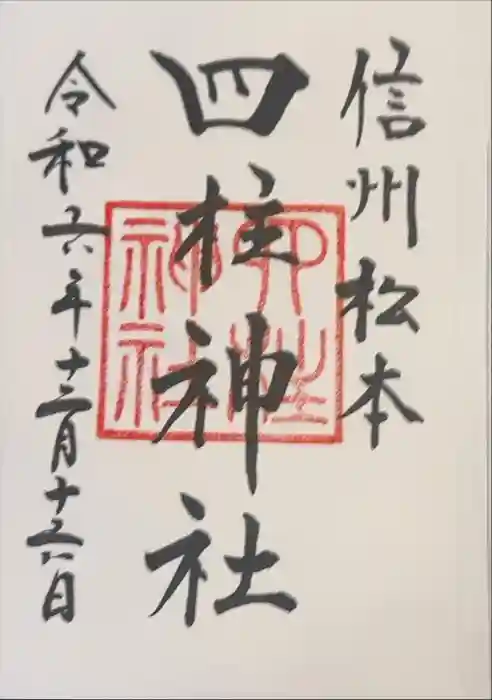 信州松本
四柱神社
令和六年十二月十六日
四柱神社